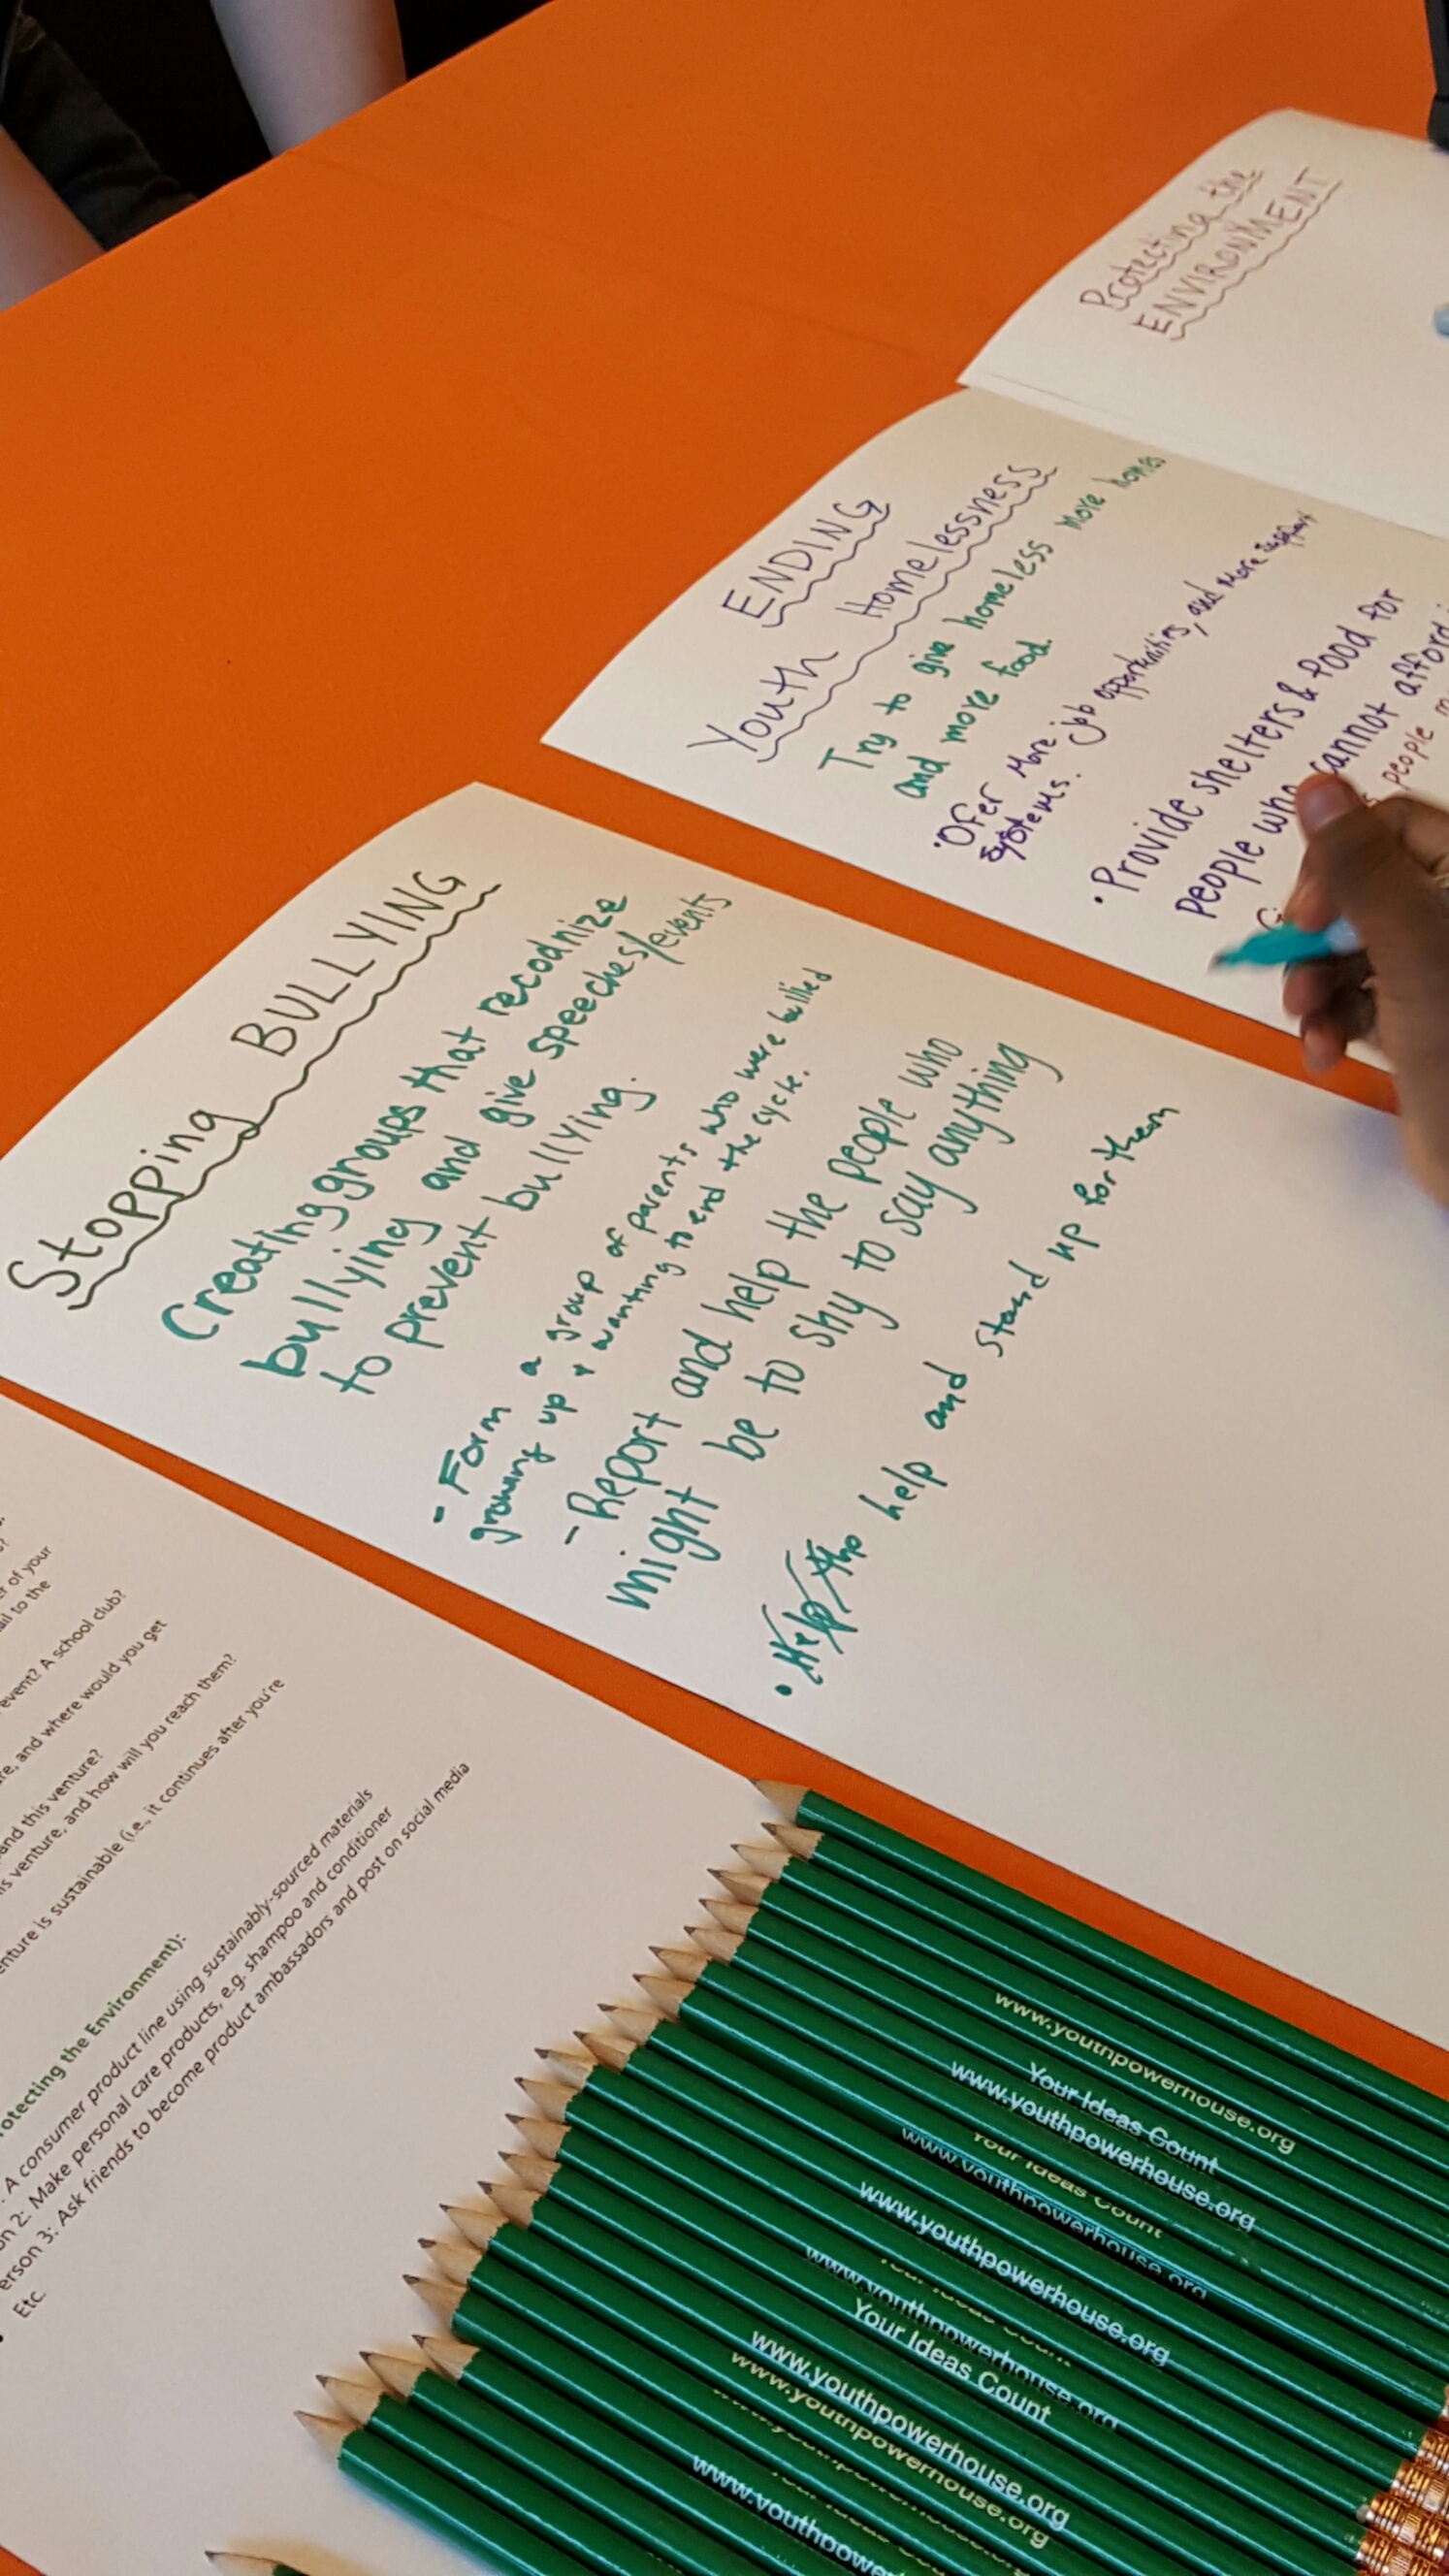 Protecting the
ENVIRONMENT
ENDING
Youth Homelessness
Try to give homeless more homes
and more food.
·Ofer more job opportunities, and more support
systems.
· Provide shelters & food for
people who cannot afford
people
Stopping BULLYING
Creating groups that recodnize
bullying and give speeches/events
to prevent bullying.
- Form a group of parents who were bullied
growing up & wanting to end the cycle.
- Report and help the people who
might be to shy to say anything
· Help the help and stand up for them
of your
to the
event? A school club?
and where would you get
and this venture?
venture, and how will you reach them?
is sustainable (i.e., it continues after you're
the Environment):
A consumer product line using sustainably-sourced materials
2: Make personal care products, e.g. shampoo and conditioner
3: Ask friends to become product ambassadors and post on social media
Etc.
www.youthpowerhouse.org
Your Ideas Count
www.youthpowerhouse.org
Your Ideas Count
www.youthpowerhouse.org
www.youthpowerhouse.org
www.youthpowerhouse.org
Your Ideas Count
www.youthpowerhouse.org
www.youthpowerhouse.org
www.youthpower